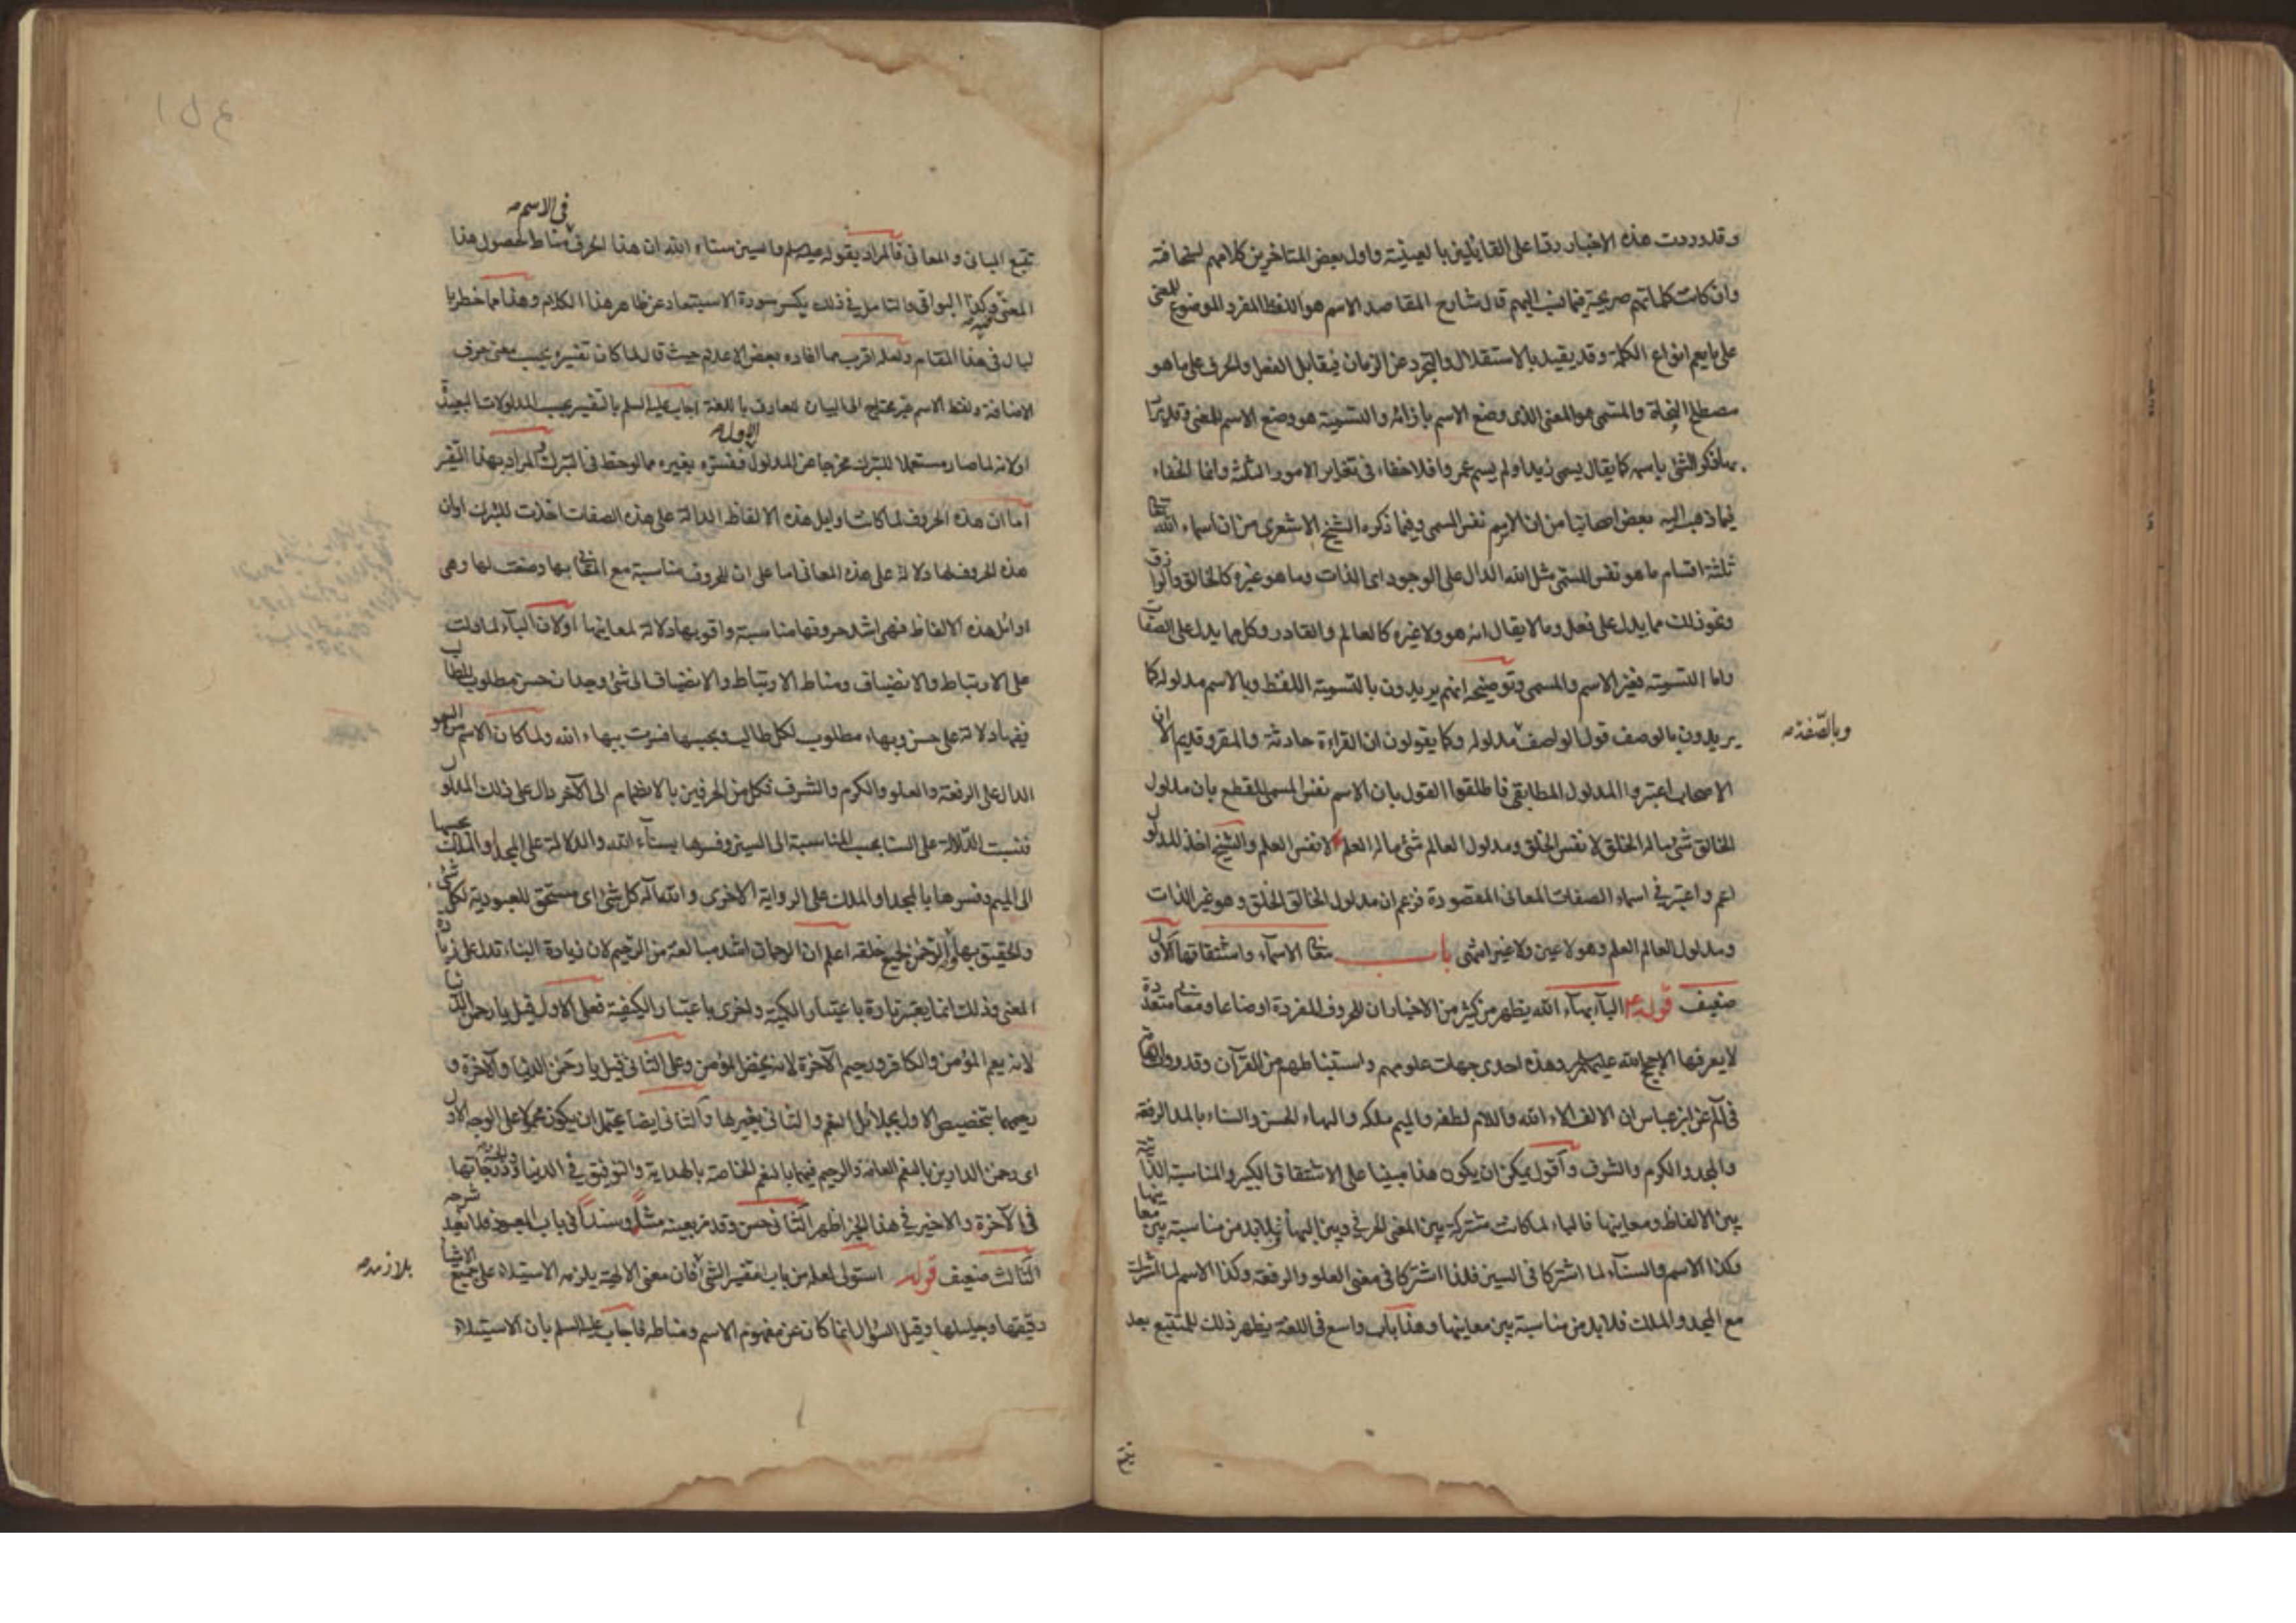 وقد وردت هذه الاخبار ردّا على القائلين بالعينيّة واوّل بعض المتاخرين كلامهم لسخافته
وان كانت كلماتهم صريحة فيما نسب اليهم قال شارح المقاصد الاسم هو اللفظ المفرد الموضوع للمعنى
على ما يعم انواع الكلمة وقد يقيد بالاستقلال والتجرد عن الزمان فيقابل الفعل والحرف على ما هو
مصطلح النحاة والمسمى هو المعنى الذى وضع الاسم بازائه والتسمية هو وضع الاسم للمعنى وقد يراد
بها ذكر الشئ باسمه كما يقال يسمى زيدا ولم يسم عمروا فلا خفاء فى تغاير الامور الثلثة وانما الخفاء
فيما ذهب اليه بعض اصحابنا من ان الاسم نفس المسمى وفيما ذكره الشيخ الاشعرى من ان اسماء الله تعالى
ثلثة اقسام ما هو نفس المسمى مثل الله الدال على الوجود اى الذات وما هو غيره كالخالق والرازق
ونحو ذلك مما يدل على فعل وما لا يقال انه هو ولا غيره كالعالم والقادر وكل ما يدل على الصفات
واما التسمية فغير الاسم والمسمى وتوضيحه انهم يريدون بالتسمية اللفظ وبالاسم مدلوله كما
يريدون بالوصف قول الواصف مدلوله وكما يقولون ان القراءة حادثة والمقرو قديم الا ان
وبالصّفة
الاصحاب اعتبروا المدلول المطابقى فاطلقوا القول بان الاسم نفس المسمى للقطع بان مدلول
الخالق شئ ما له الخلق لا نفس الخلق ومدلول العالم شئ ما له العلم لا نفس العلم والشيخ اخذ المدلول
اعم واعتبر فى اسماء الصفات المعانى المقصودة فزعم ان مدلول الخالق الخلق وهو غير الذات
ومدلول العالم العلم وهو لا عين ولا غير انتهى باب معانى الاسماء واشتقاقها الاول
ضعيف قوله البآء بهآء الله يظهر من كثير من الاخبار ان للحروف المفردة اوضاعا ومعانى متعددة
لا يعرفها الا حجج الله عليهم السلم وهذه احدى جهات علومهم واستنباطهم من القرآن وقد روت العامة
فى آلم عن ابن عباس ان الالف آلاء الله واللام لطفه والميم ملكه والبهاء الحسن والسناء بالمد الرفعة
والمجد الكرم والشرف واقول يمكن ان يكون هذا مبنيا على الاشتقاق الكبير والمناسبة الذاتية
بين الالفاظ ومعانيها فالباء لما كانت مشتركة بين المعنى الحرفى وبين البهآء فلا بد من مناسبة بين معانيها
وكذا الاسم والسنآء لما اشتركا فى السين فلذا اشتركا فى معنى العلو والرفعة وكذا الاسم لما اشترك
مع المجد والملك فلا بد من مناسبة بين معانيها وهذا باب واسع فى اللغة يظهر ذلك للمتتبع بعد
تتبع
فى الاسم
تتبع المبانى والمعانى فالمراد بقوله عليه السلم والسين سناء الله ان هذا الحرف مناط لحصول هذا
المعنى وكذا البواقى والتامل فى ذلك يكسر سورة الاستبعاد عن ظاهر هذا الكلام وهذا مما خطر با
لبال فى هذا المقام ولعله اقرب مما افاده بعض الاعلام حيث قال لما كان تفسيره بحسب معنى حرف
الاضافة ولفظ الاسم غير محتاج الى البيان للعارف باللغة اجاب عليه السلم بالتفسير بحسب المدلولات البعيدة
اولانه لما صار مستعملا للتبرك مخرجا عن المدلول الاول ففسره بغيره مما لوحظ فى التبرك والمراد بهذا التفسير
اما ان هذه الحروف لما كانت اوايل هذه الالفاظ الدالة على هذه الصفات اخذت للتبرك اوان
هذه الحروف لها دلالة على هذه المعانى اما على ان للحروف مناسبة مع المعانى بها وضعت لها وهى
اوائل هذه الالفاظ فهى اشد حروفها مناسبة واقويها دلالة لمعانيها اولان البآء لما دلت
على الارتباط والانضياف ومناط الارتباط والانضياف الى شئ وجدان حسن مطلوب للطالب
ففيها دلالة على حسن وبهاء مطلوب لكل طالب وبحسبها فسرت ببهاء الله ولما كان الاسم من السمو
الدال على الرفعة والعلو والكرم والشرف فكل من الحرفين بالانضمام الى الآخر دال على ذلك المدلول
فنسبت الدلالة على السنا بحسب المناسبة الى السين وفسرها بسنآء الله والدلالة على المجد او الملك بحسبها
الى الميم وفسرها بالمجد او الملك على الرواية الاخرى والله اله كل شئ اى مستحق للعبودية لكل شئ
والحقيق بها والرحمن لجميع خلقه اعلم ان الرحمان اشد مبالغة من الرحيم لان زيادة البناء تدل على زيادة
المعنى وذلك انما يعتبر تارة باعتبار الكمية واخرى باعتبار الكيفية فعلى الاول قيل يا رحمن الدنيا
لانه يعم المؤمن والكافر ورحيم الآخرة لانه يخص المؤمن وعلى الثانى قيل يا رحمن الدنيا والآخرة و
رحيمهما بتخصيص الاول بجلائل النعم والثانى بغيرها والثانى ايضا يحتمل ان يكون محمولا على الوجه الاول
اى رحمن الدارين بالنعم العامة والرحيم فيهما بالنعم الخاصة بالهداية والتوفيق فى الدنيا والجنة ودرجاتها
فى الآخرة والاخير فى هذا الخبر اظهر الثانى حسن وقد مر بعينه متنا وسندا فى باب المعبود فلا نعيد شرحه
الثالث ضعيف قوله استولى لعله من باب تفسير الشئ فان معنى الالهية يلزمه الاستيلاء على جميع الاشيآء
بلازمه
دقيقها وجليلها وقيل السؤال انما كان عن مفهوم الاسم ومناطه فاجاب عليه السلم بان الاستيلاء